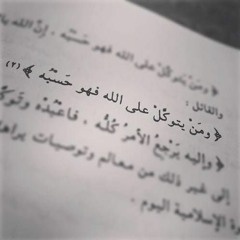 ﴿ ومَنْ يتوكَّلْ على الله فهو حَسْبُه ﴾، إنَّ الله
والقائل :
﴿ ومَنْ يتوكَّلْ على الله فهو حَسْبُه ﴾ (٢)
﴿ وإليه يَرْجِعُ الأمرُ كلُّه ، فاعْبُدْه وتَوَكَّلْ
إلى غير ذلك من معالم وتوصيات
الإسلامية اليوم .